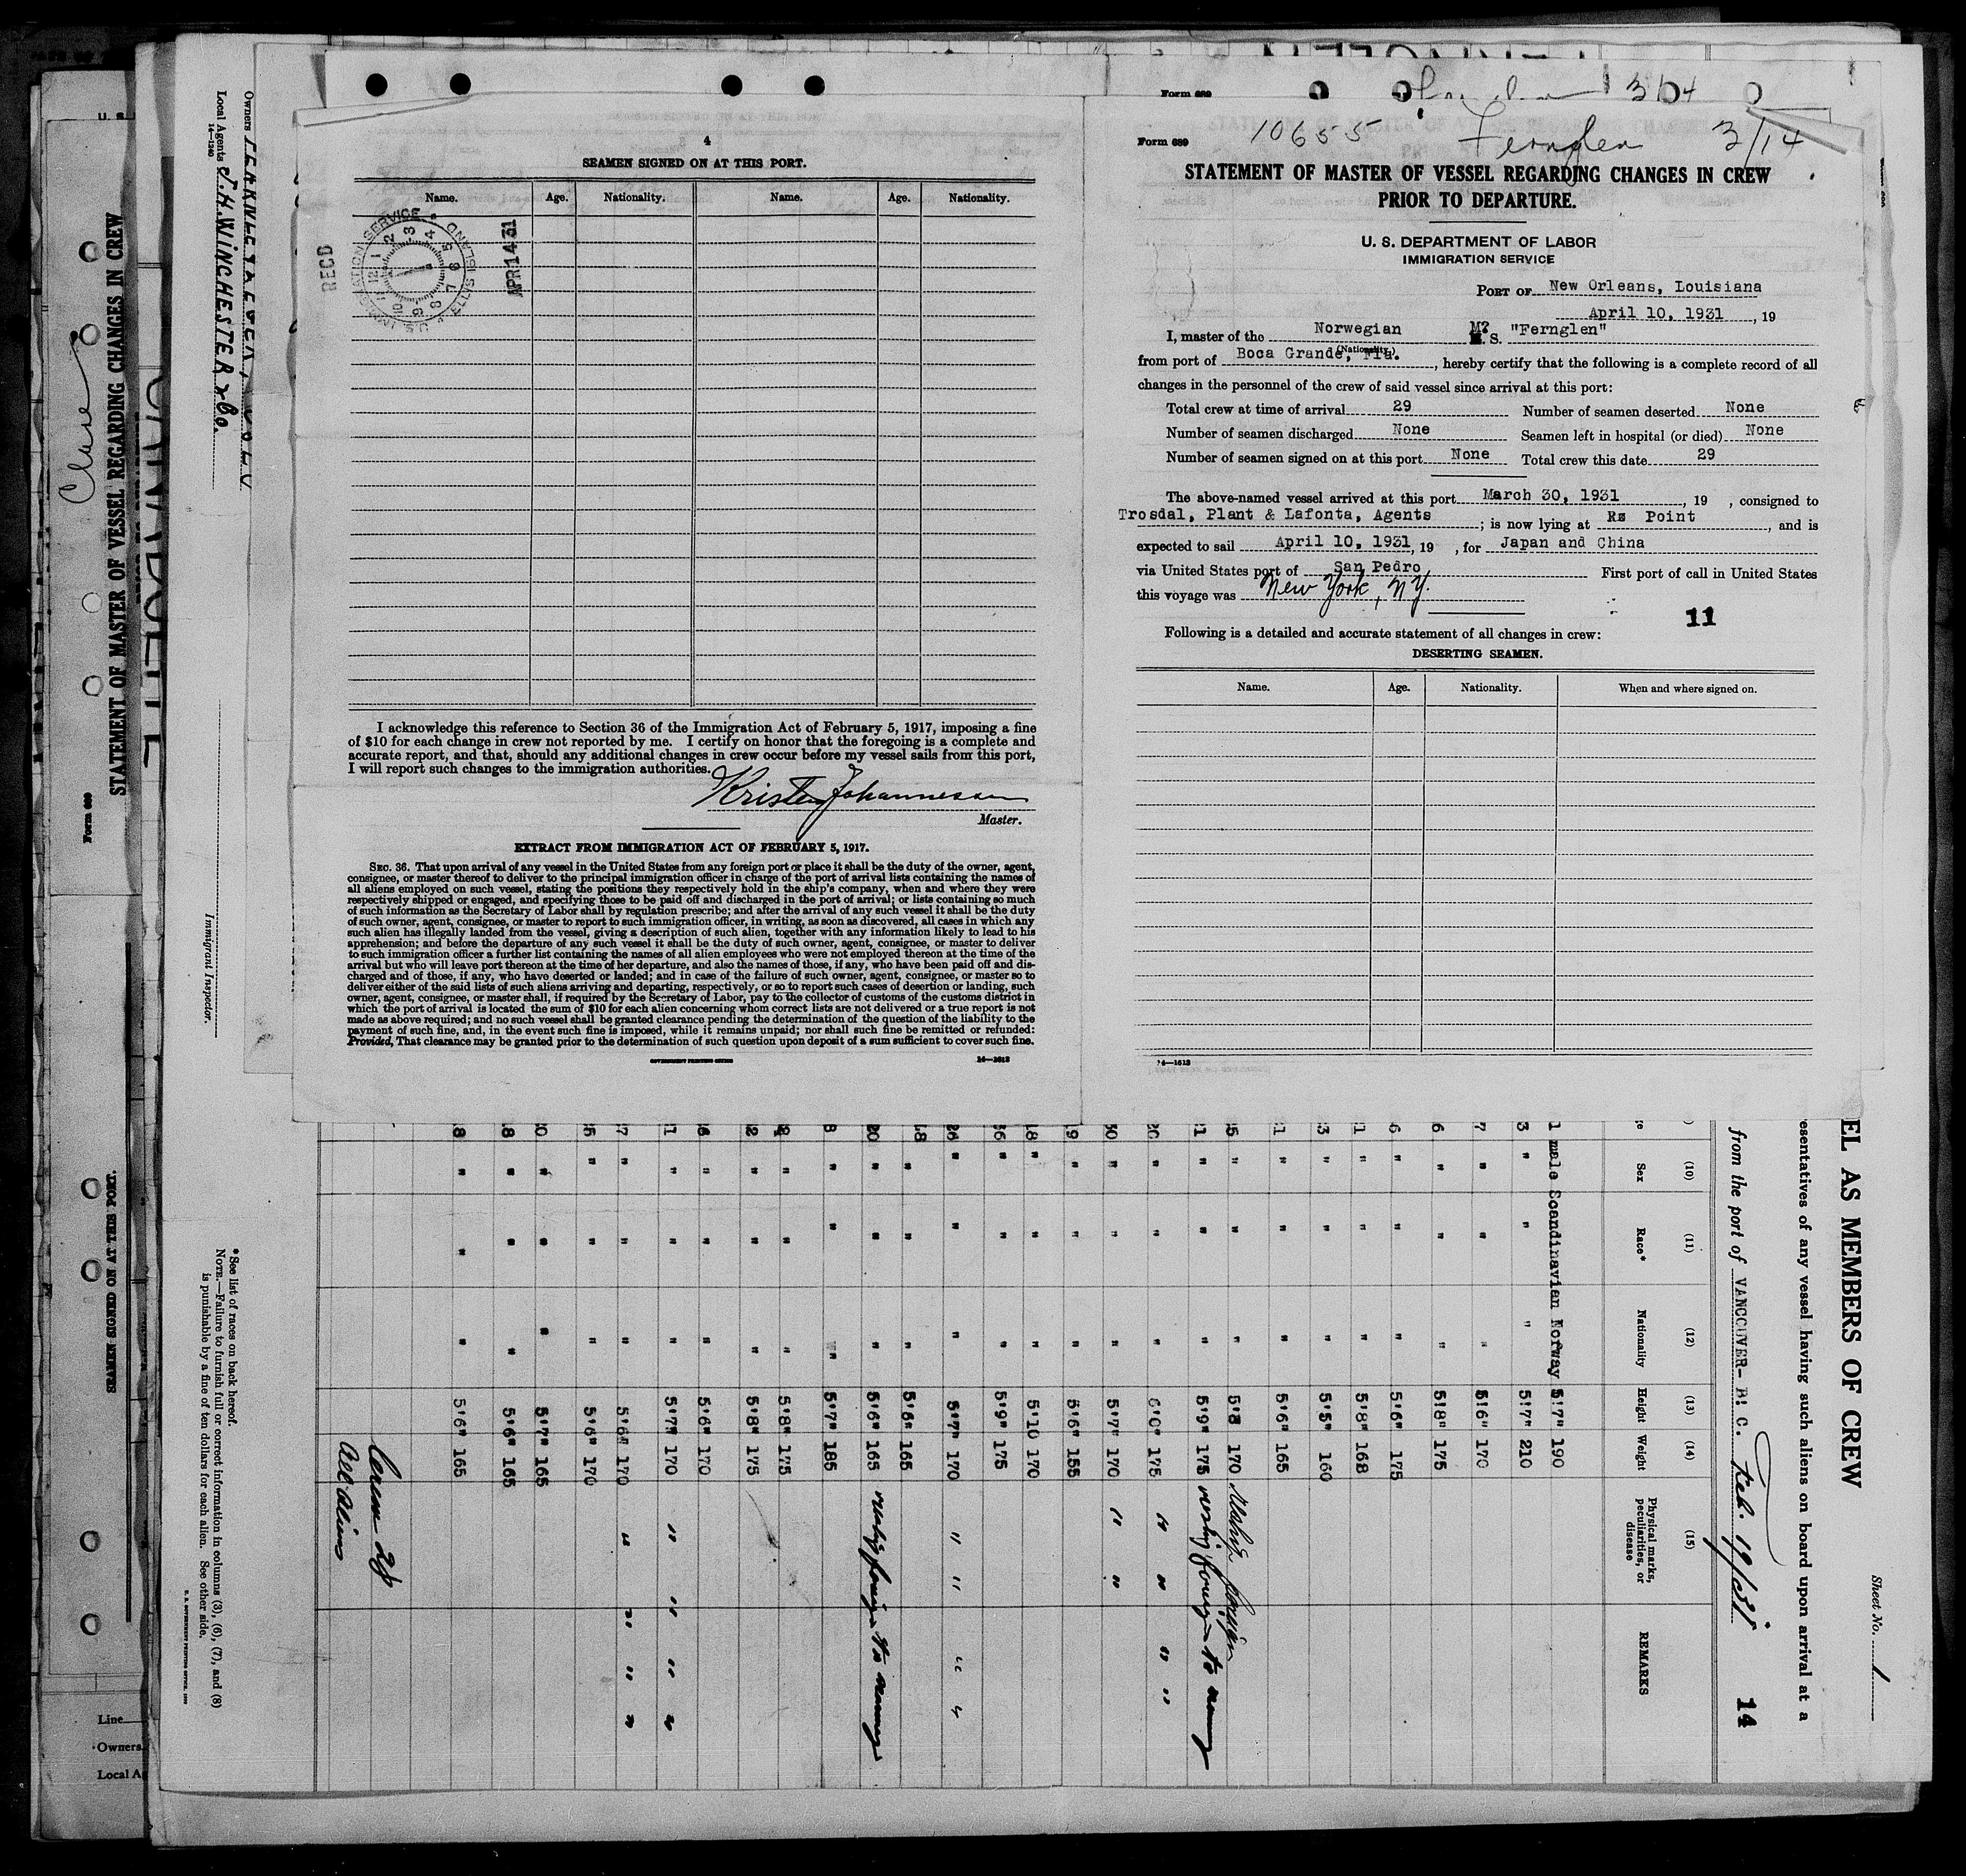 4
SEAMEN SIGNED ON AT THIS PORT.
Name. Age. Nationality. Name. Age. Nationality.
RECD
U. S. IMMIGRATION SERVICE
ELLIS ISLAND
APR 14 31
I acknowledge this reference to Section 36 of the Immigration Act of February 5, 1917, imposing a fine
of $10 for each change in crew not reported by me. I certify on honor that the foregoing is a complete and
accurate report, and that, should any additional changes in crew occur before my vessel sails from this port,
I will report such changes to the immigration authorities.
Kristen Johannessen
Master.
EXTRACT FROM IMMIGRATION ACT OF FEBRUARY 5, 1917.
SEC. 36. That upon arrival of any vessel in the United States from any foreign port or place it shall be the duty of the owner, agent,
consignee, or master thereof to deliver to the principal immigration officer in charge of the port of arrival lists containing the names of
all aliens employed on such vessel, stating the positions they respectively hold in the ship's company, when and where they were
respectively shipped or engaged, and specifying those to be paid off and discharged in the port of arrival; or lists containing so much
of such information as the Secretary of Labor shall by regulation prescribe; and after the arrival of any such vessel it shall be the duty
of such owner, agent, consignee, or master to report to such immigration officer, in writing, as soon as discovered, all cases in which any
such alien has illegally landed from the vessel, giving a description of such alien, together with any information likely to lead to his
apprehension; and before the departure of any such vessel it shall be the duty of such owner, agent, consignee, or master to deliver
to such immigration officer a further list containing the names of all alien employees who were not employed thereon at the time of the
arrival but who will leave port thereon at the time of her departure, and also the names of those, if any, who have been paid off and dis-
charged and of those, if any, who have deserted or landed; and in case of the failure of such owner, agent, consignee, or master so to
deliver either of the said lists of such aliens arriving and departing, respectively, or so to report such cases of desertion or landing, such
owner, agent, consignee, or master shall, if required by the Secretary of Labor, pay to the collector of customs of the customs district in
which the port of arrival is located the sum of $10 for each alien concerning whom correct lists are not delivered or a true report is not
made as above required; and no such vessel shall be granted clearance pending the determination of the question of the liability to the
payment of such fine, and, in the event such fine is imposed, while it remains unpaid; nor shall such fine be remitted or refunded:
Provided, That clearance may be granted prior to the determination of such question upon deposit of a sum sufficient to cover such fine.
GOVERNMENT PRINTING OFFICE 14—1613
Form 689
3/14
Form 689 10655 Fernglen 3/14
STATEMENT OF MASTER OF VESSEL REGARDING CHANGES IN CREW
PRIOR TO DEPARTURE.
U. S. DEPARTMENT OF LABOR
IMMIGRATION SERVICE
PORT OF New Orleans, Louisiana
April 10, 1931, 19
I, master of the Norwegian M. S. "Fernglen"
(Nationality.)
from port of Boca Grande, Fla., hereby certify that the following is a complete record of all
changes in the personnel of the crew of said vessel since arrival at this port:
Total crew at time of arrival 29 Number of seamen deserted None
Number of seamen discharged None Seamen left in hospital (or died) None
Number of seamen signed on at this port None Total crew this date 29
The above-named vessel arrived at this port March 30, 1931, 19 , consigned to
Trosdal, Plant & Lafonta, Agents; is now lying at Point, and is
expected to sail April 10, 1931, 19 , for Japan and China
via United States port of San Pedro First port of call in United States
this voyage was New York, N.Y.
11
Following is a detailed and accurate statement of all changes in crew:
DESERTING SEAMEN.
Name. Age. Nationality. When and where signed on.
14—1613
EL AS MEMBERS OF CREW
Sheet No. 1
esentatives of any vessel having such aliens on board upon arrival at a
from the port of VANCOUVER- B. C. Feb. 19/31 14
(10) (11) (12) (13) (14) (15)
Sex Race* Nationality Height Weight Physical marks, peculiarities, or disease REMARKS
1 male Scandinavian Norway 5'7" 190
3 " " " 5'7" 210
7 " " " 5'6" 170
6 " " " 5'8" 175
6 " " " 5'6" 175
1 " " " 5'8" 168
3 " " " 5'5" 160
1 " " " 5'6" 165
5 " " " 5'8 170
1 " " " 5'9" 175
0 " " " 6'0" 175 " " " "
30 " " " 5'7" 170 " "
19 " " " 5'6" 155
18 " " " 5'10 170
36 " " " 5'9" 175
26 " " " 5'7" 170 " " " "
18 " " " 5'6" 165
20 " " " 5'6" 165
8 " " " 5'7" 185
2 " " " 5'8" 175
2 " " " 5'8" 175
6 " " " 5'6" 170
1 " " " 5'7" 170 " " " "
7 " " " 5'6" 170 " " " "
5 " " " 5'6" 170
0 " " " 5'7" 165
8 " " " 5'6" 165
8 " " " 5'6" 165
all aliens
*See list of races on back hereof.
NOTE.—Failure to furnish full or correct information in columns (3), (6), (7), and (8)
is punishable by a fine of ten dollars for each alien. See other side.
Owners
Local Agents J.H. WINCHESTER & Co.
14—1240
Immigrant Inspector.
Clare
STATEMENT OF MASTER OF VESSEL REGARDING CHANGES IN CREW
Form 689
SEAMEN SIGNED ON AT THIS PORT.
U. S.
Line
Owners
Local A